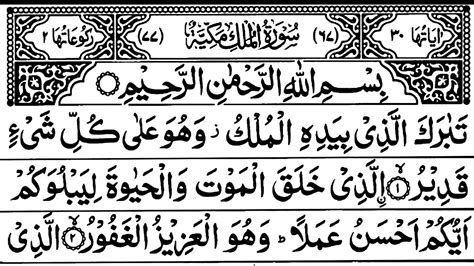 اٰیَاتُهَا ۳۰ (۶۷) سُوْرَةُ الْمُلْكِ مَكِّیَّةٌ (۷۷) رُكُوْعَاتُهَا ۲
بِسْمِ اللّٰهِ الرَّحْمٰنِ الرَّحِیْمِ
تَبٰرَكَ الَّذِیْ بِیَدِهِ الْمُلْكُ ز وَهُوَ عَلٰی كُلِّ شَیْءٍ
قَدِیْرُ ۙ﴿۱﴾ الَّذِیْ خَلَقَ الْمَوْتَ وَالْحَیٰوةَ لِیَبْلُوَكُمْ
اَیُّكُمْ اَحْسَنُ عَمَلًا ؕ وَهُوَ الْعَزِیْزُ الْغَفُوْرُ ۙ﴿۲﴾ الَّذِیْ